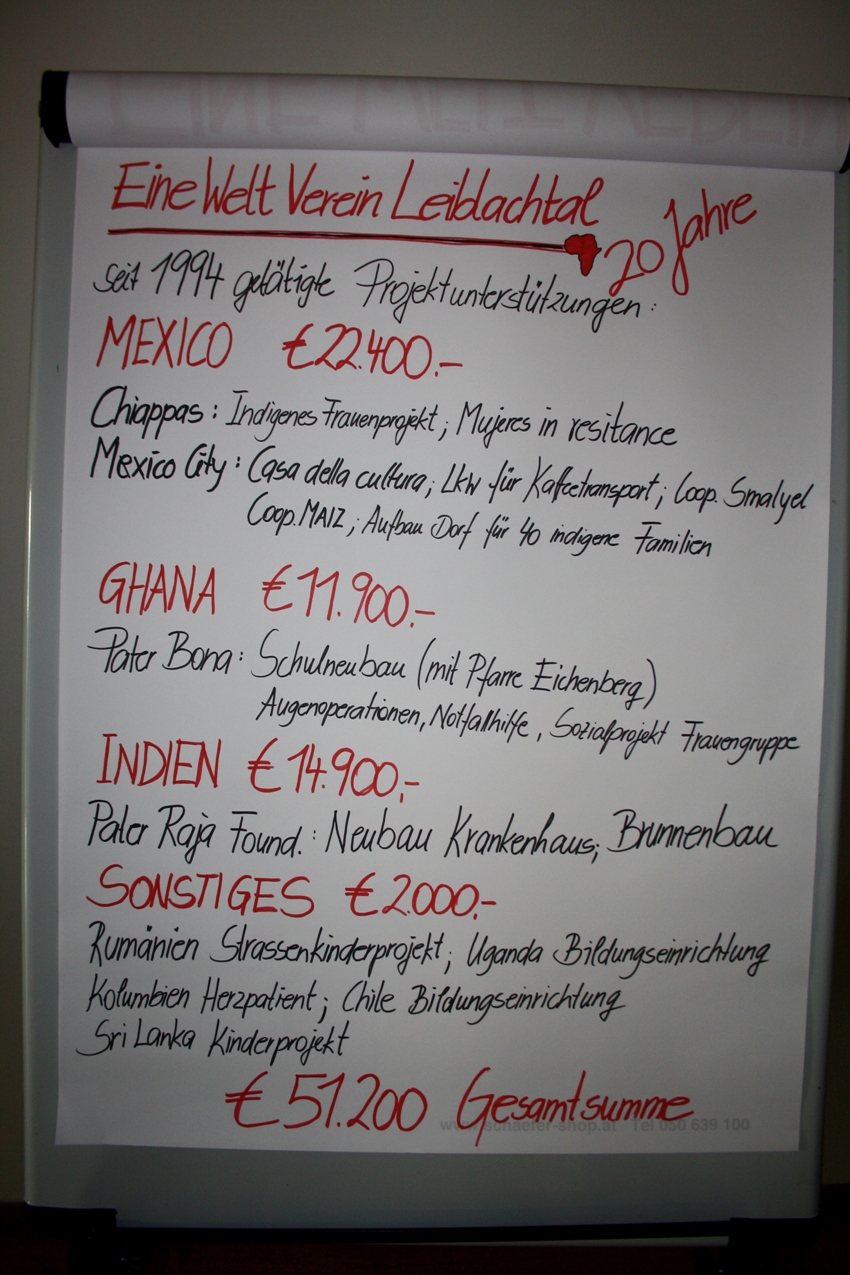 Eine Welt Verein Leiblachtal
20 Jahre
seit 1994 getätigte Projektunterstützungen:
MEXICO €22.400.-
Chiappas: Indigenes Frauenprojekt; Mujeres in resitance
Mexico City: Casa della cultura; Lkw für Kaffeetransport; Coop. Smalyel
Coop. MAIZ; Aufbau Dorf für 40 indigene Familien
GHANA €11.900.-
Pater Bona: Schulneubau (mit Pfarre Eichenberg)
Augenoperationen, Notfallhilfe, Sozialprojekt Frauengruppe
INDIEN €14.900,-
Pater Raja Found.: Neubau Krankenhaus; Brunnenbau
SONSTIGES €2.000.-
Rumänien Strassenkinderprojekt; Uganda Bildungseinrichtung
Kolumbien Herzpatient; Chile Bildungseinrichtung
Sri Lanka Kinderprojekt
€51.200 Gesamtsumme
www.schaefer-shop.at Tel 050 639 100